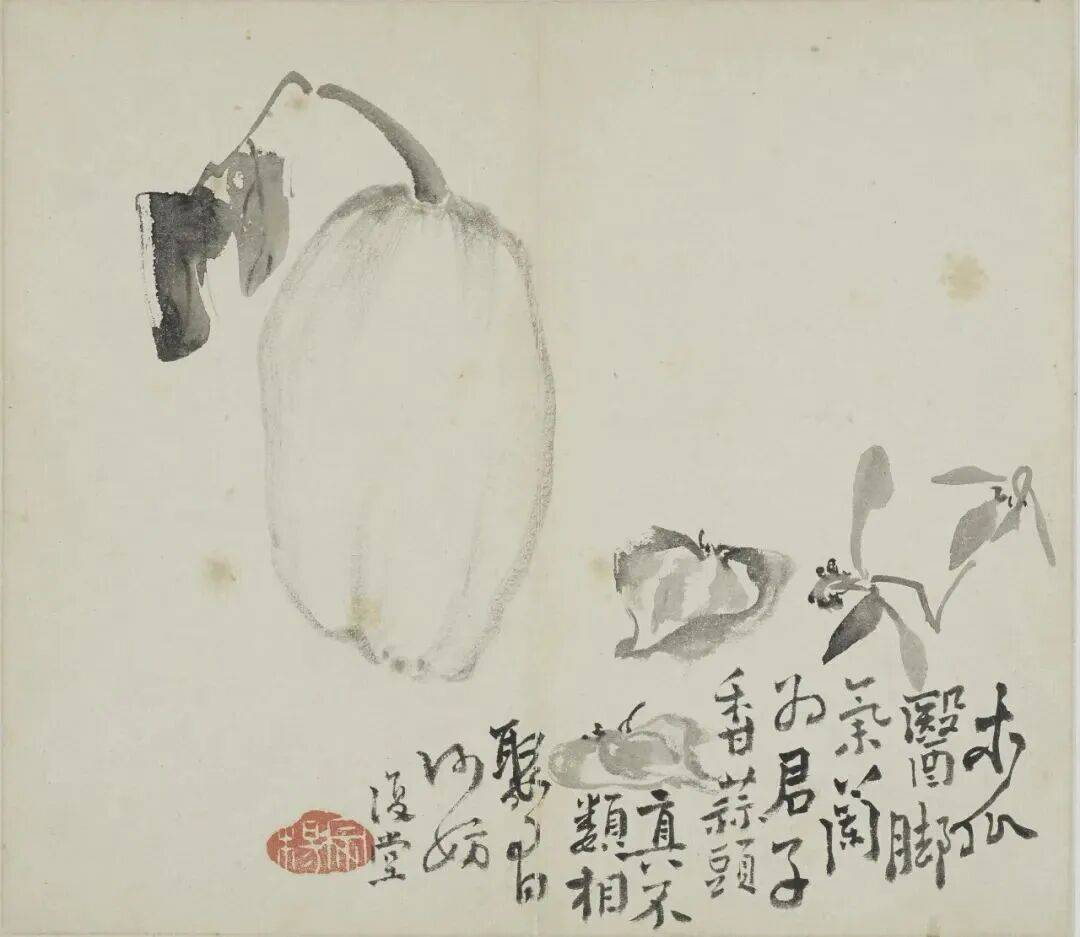 木瓜
醫脚
氣蘭
为君子
香蒜頭
真不
類相
聚
何妨
復堂